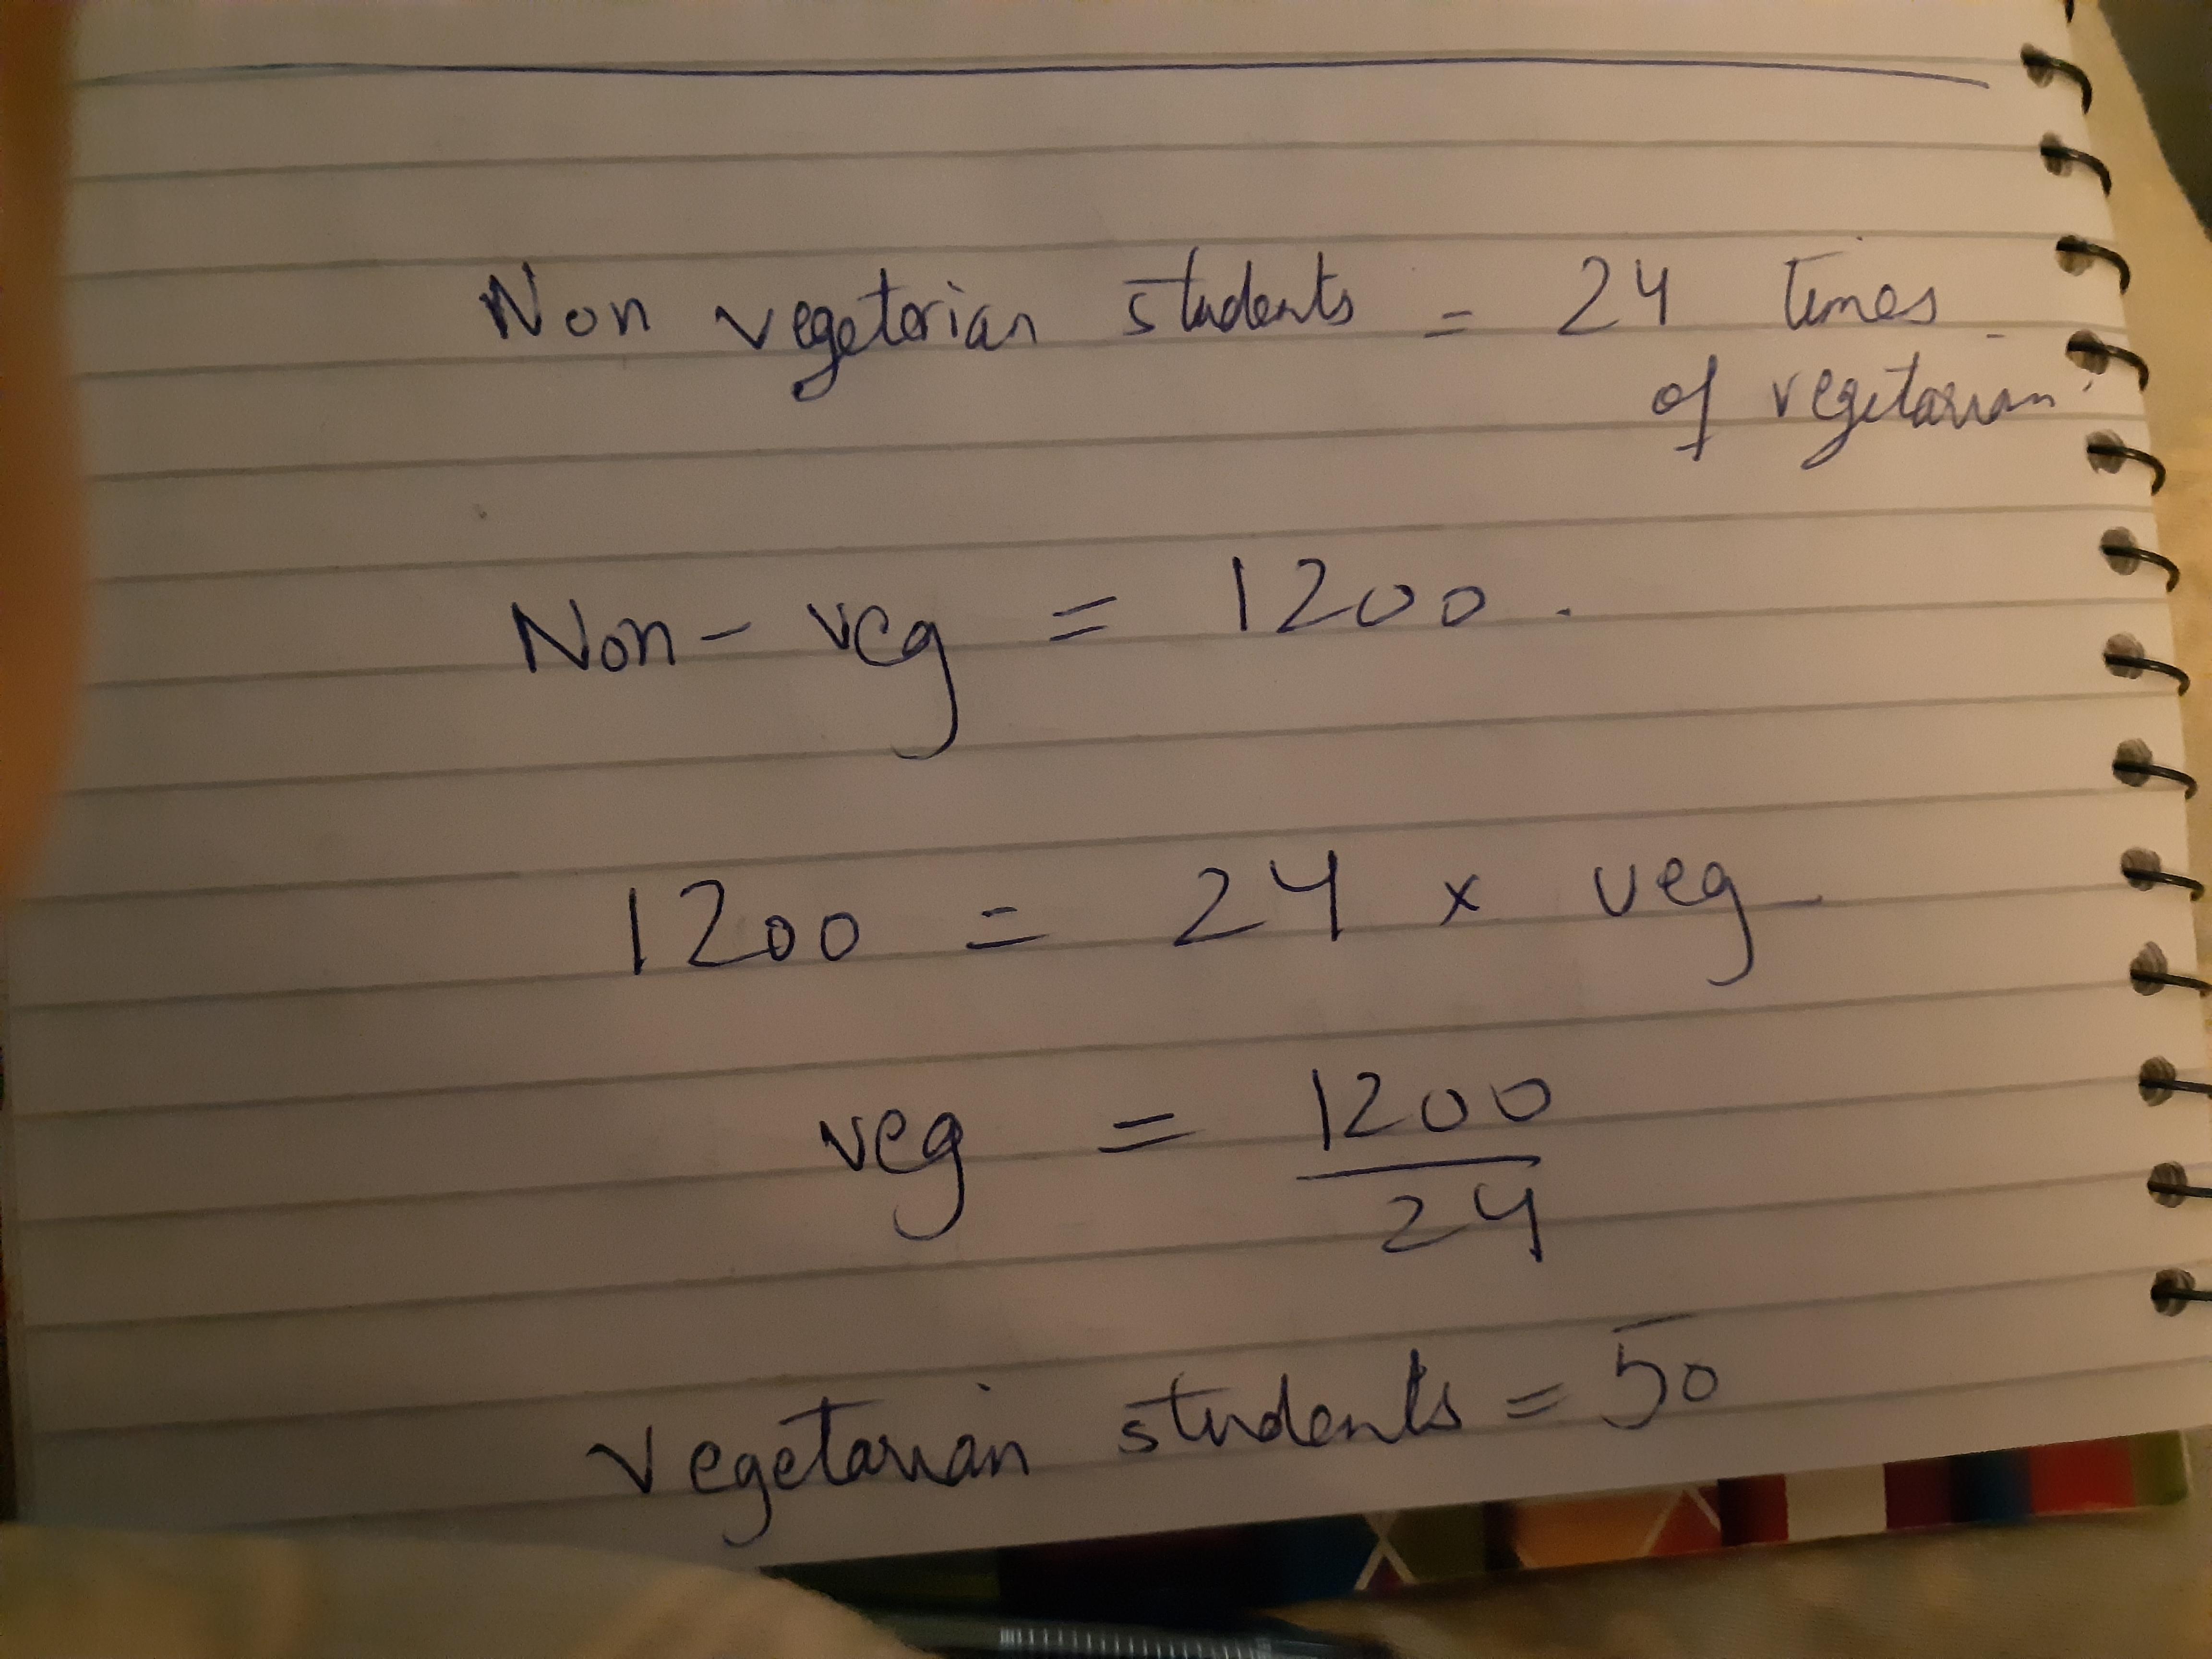 Non vegetorian students = 24 times
of vegetarian.
Non-veg = 1200.
1200 = 24 x veg
veg = 1200/24
Vegetarian students = 50